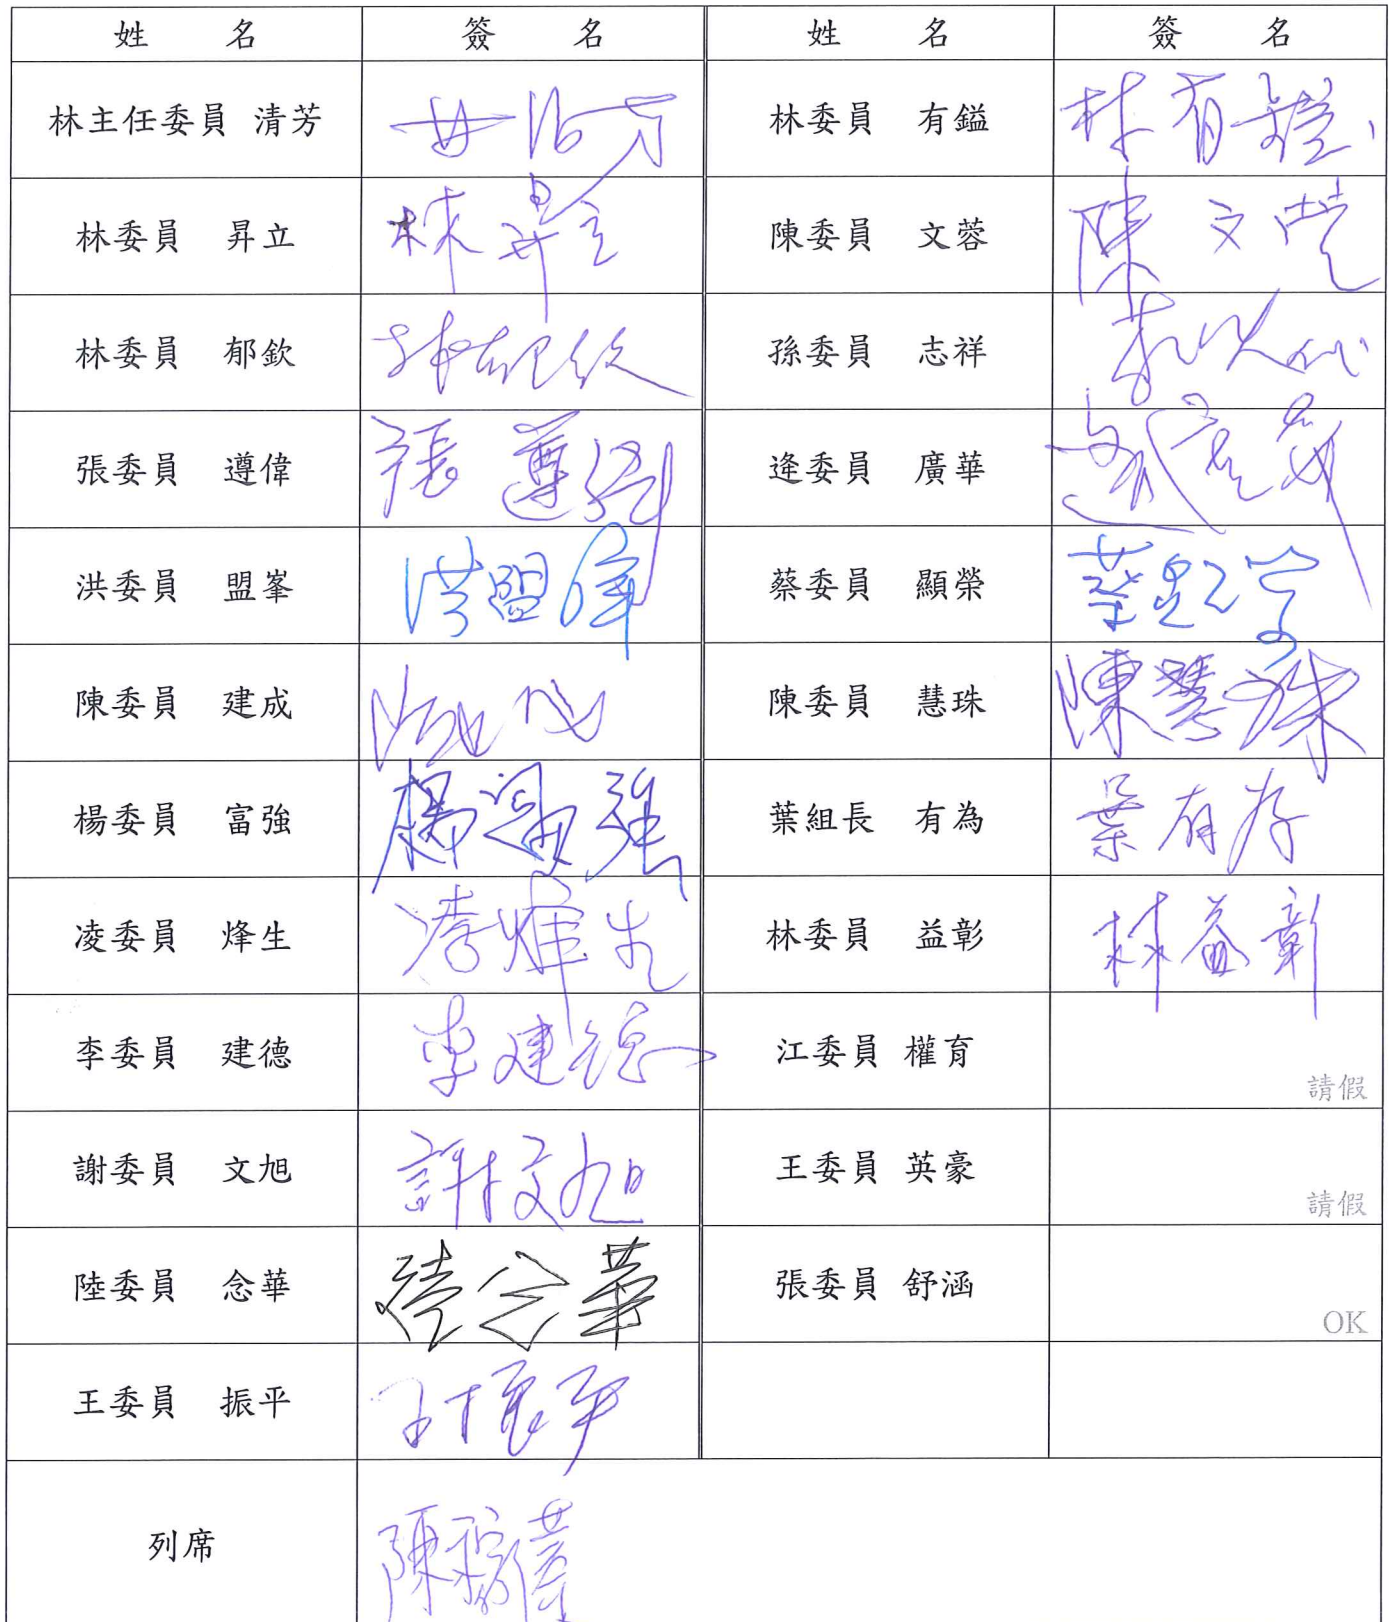 姓 名 簽 名 姓 名 簽 名
林主任委員 清芳 林委員 有鎰 林有鎰
林委員 昇立 林昇立 陳委員 文蓉 陳文蓉
林委員 郁欽 林郁欽 孫委員 志祥
張委員 遵偉 張遵偉 逄委員 廣華 逄廣華
洪委員 盟峯 洪盟峯 蔡委員 顯榮 蔡顯榮
陳委員 建成 陳委員 慧珠 陳慧珠
楊委員 富強 楊富強 葉組長 有為 葉有為
凌委員 烽生 凌烽生 林委員 益彰 林益彰
李委員 建德 李建德 江委員 權育 請假
謝委員 文旭 謝文旭 王委員 英豪 請假
陸委員 念華 陸念華 張委員 舒涵 OK
王委員 振平 王振平
列席